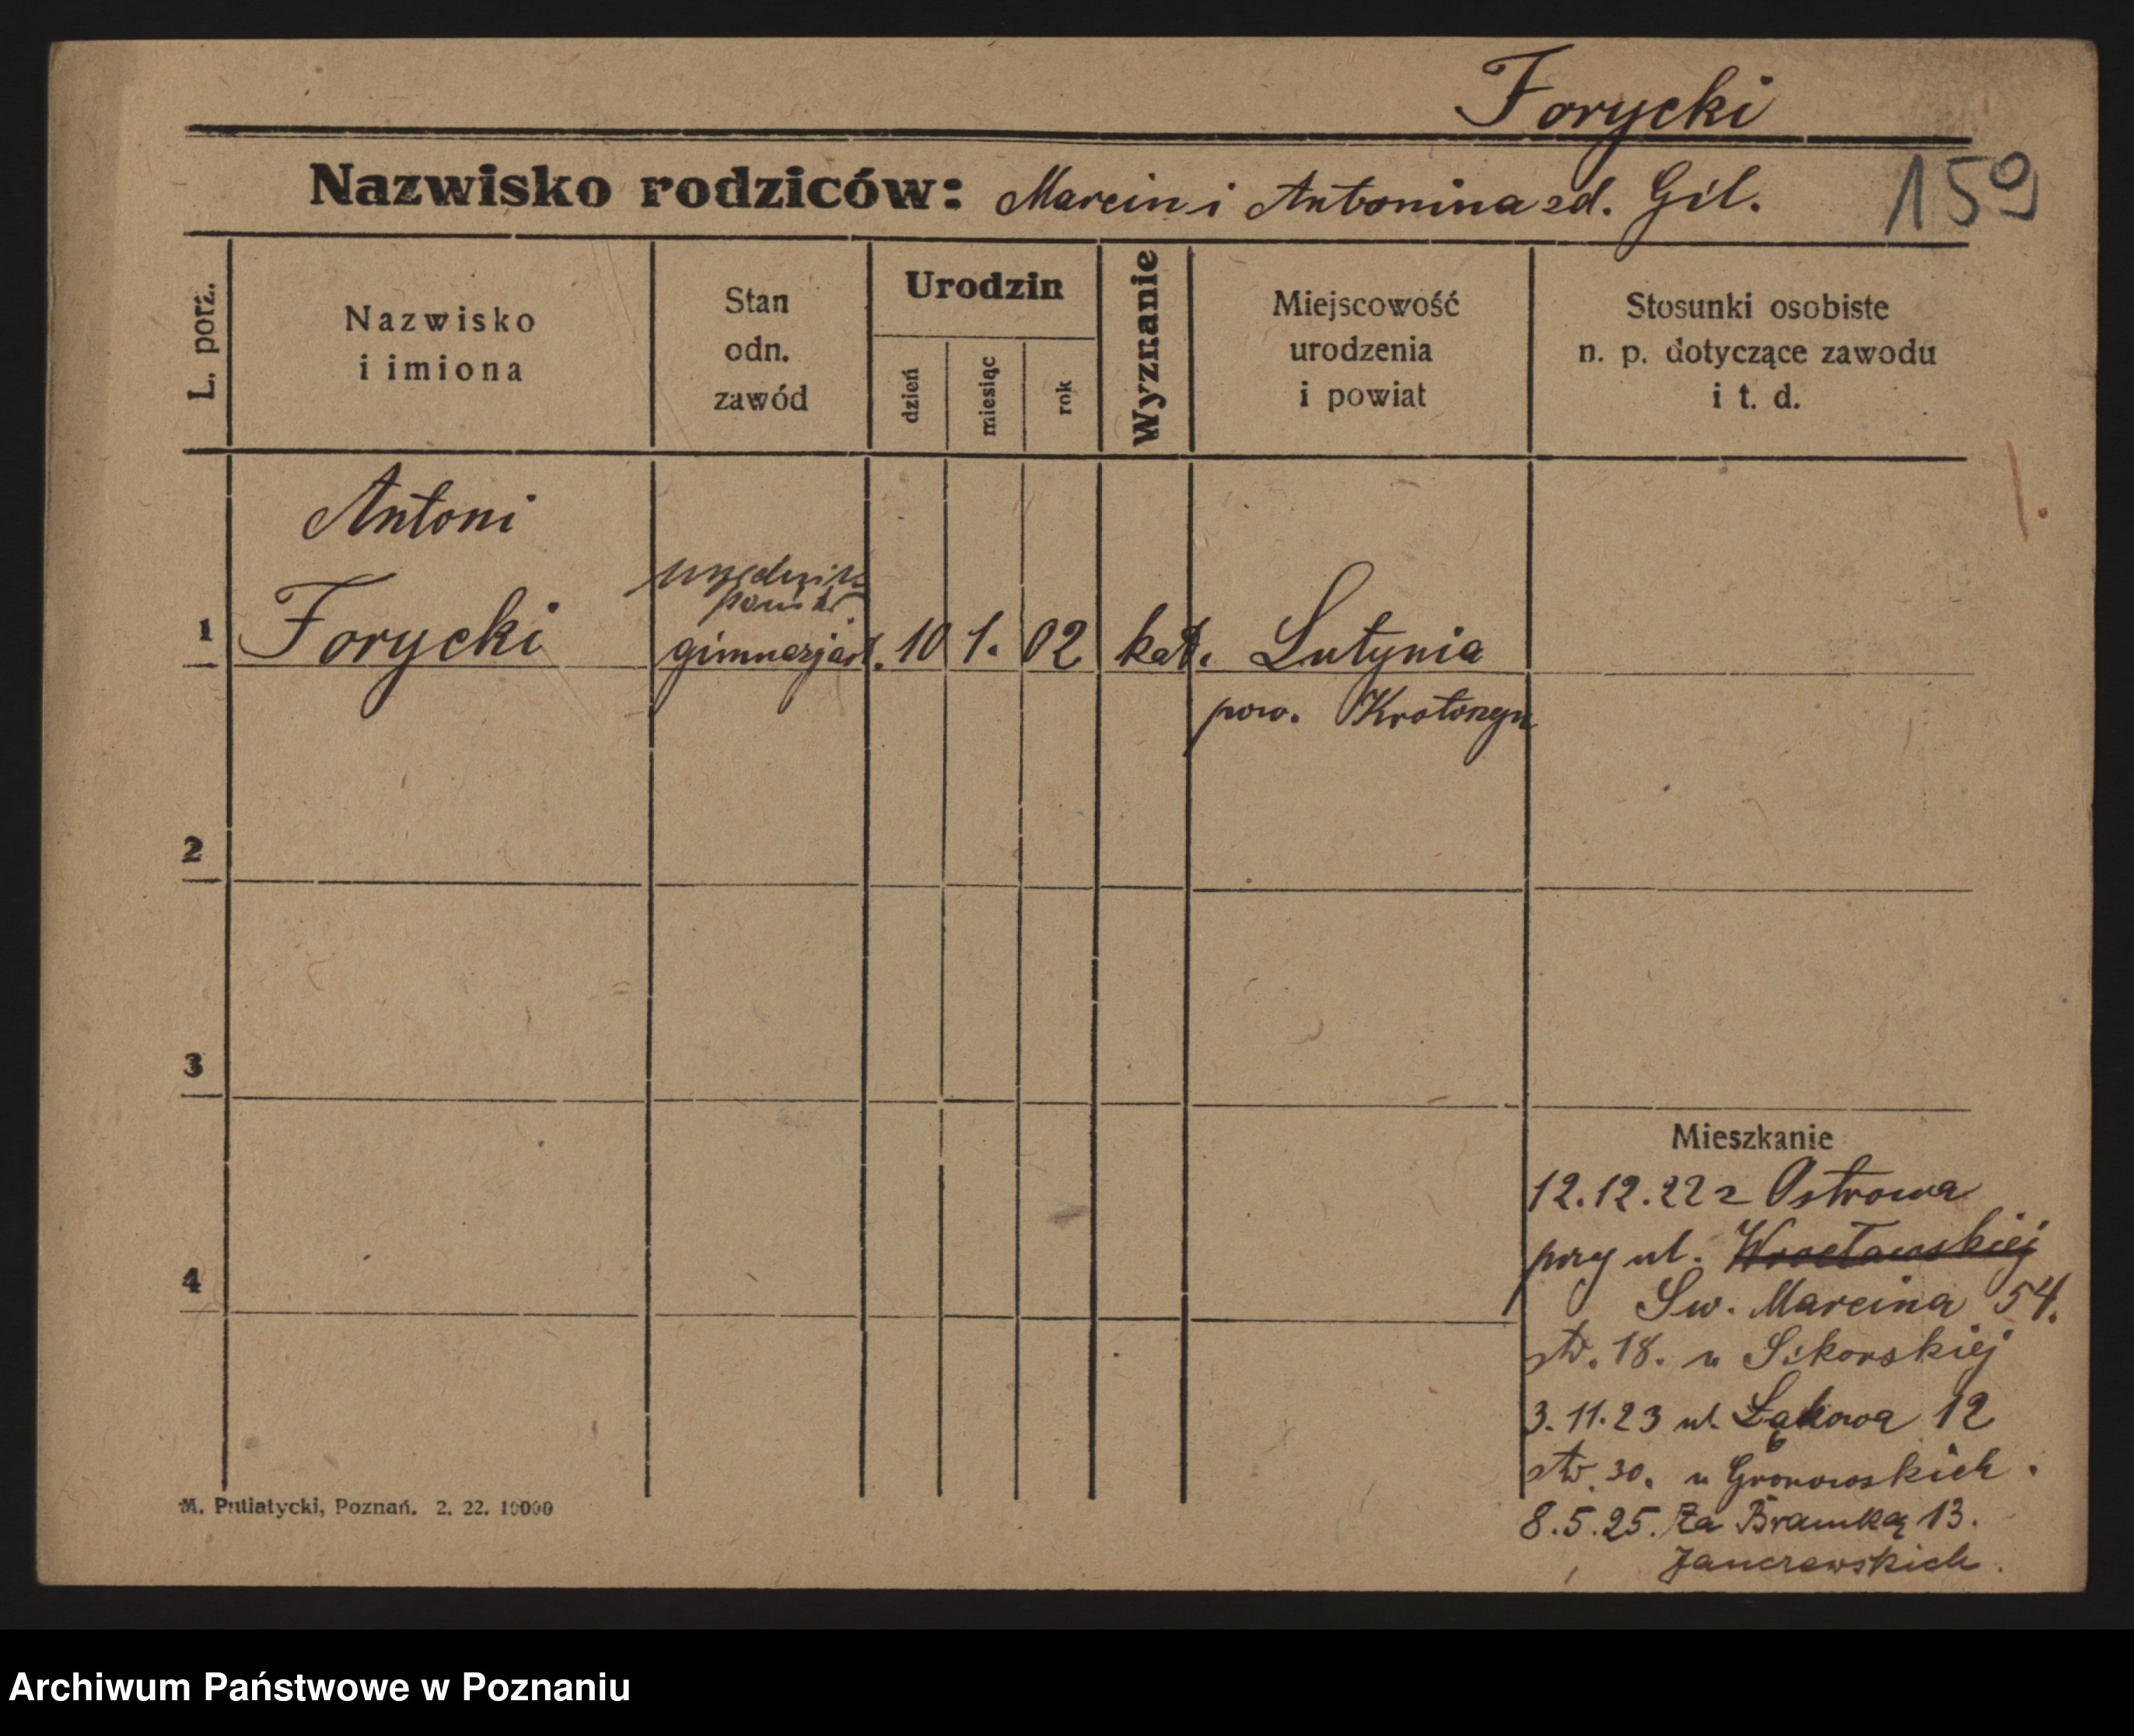 Forycki
Nazwisko rodziców: Marcin i Antonina zd. Gil.
159
L. porz.
Nazwisko
i imiona
Stan
odn.
zawód
Urodzin
dzień
miesiąc
rok
Wyznanie
Miejscowość
urodzenia
i powiat
Stosunki osobiste
n. p. dotyczące zawodu
i t. d.
1.
Antoni
urzędnik
państw
1 Forycki gimnazjast. 10 1. 02 kat. Lutynia
pow. Krotoszyn
2
3
4
Mieszkanie
12.12.22 z Ostrowa
przy ul. Wrocławskiej
Sw. Marcina 54.
18. u Sikorskiej
3.11.23 ul. Łąkowa 12
30. u Gronowskich.
8.5.25. Za Bramką 13.
Janczewskich.
M. Putiatycki, Poznań. 2. 22. 10000
Archiwum Państwowe w Poznaniu